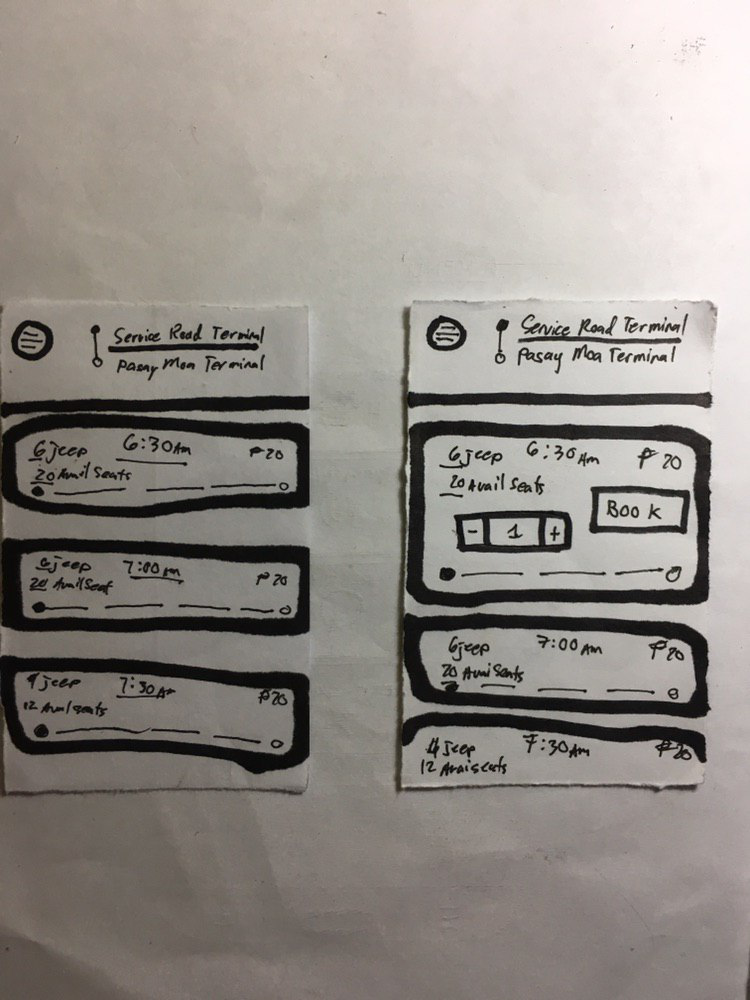 Service Road Terminal
Pasay Moa Terminal
6jeep 6:30Am ₱20
20 Avail Seats
6jeep 7:00am ₱20
20 Avail Seat
4jeep 7:30 Am ₱20
12 Avail seats
Service Road Terminal
Pasay Moa Terminal
6jeep 6:30Am ₱20
20 Avail Seats
- 1 +
Book
6jeep 7:00Am ₱20
20 Avai Seats
4 Jeep 7:30Am ₱20
12 Avai seats